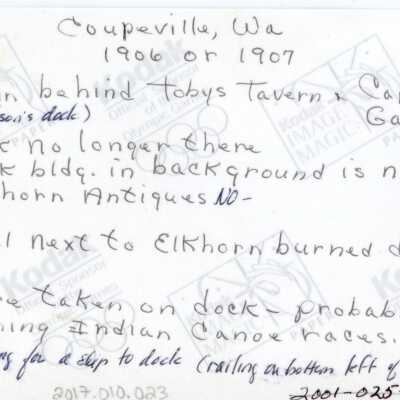 Coupeville, Wa
1906 or 1907
n behind Tobys Tavern & Ca
son's dock) Ga
no longer there
k bldg. in background is n
horn Antiques NO-
l next to Elkhorn burned d
e taken on dock - probabl
ning Indian Canoe races.
ng for a ship to dock (railing on bottom left of
2017.010.023
2001-025